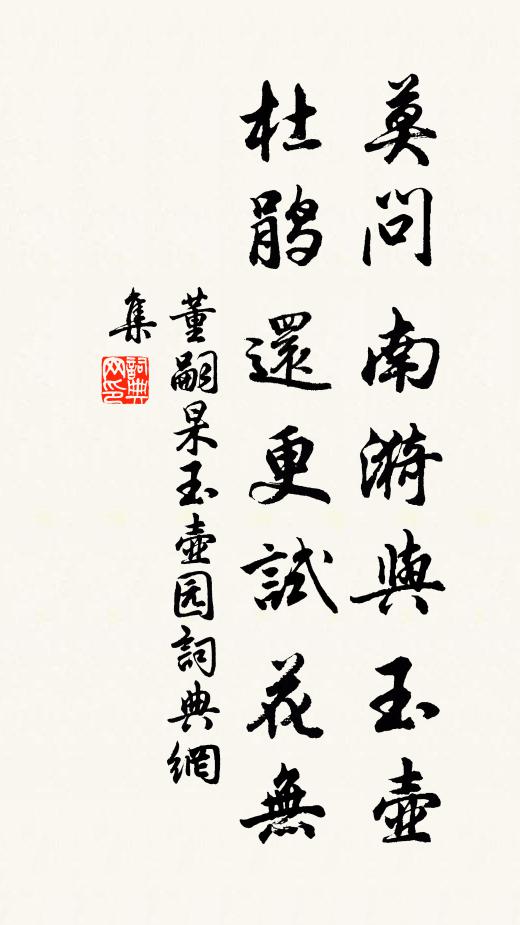 莫問南漪與玉壺
杜鵑還更試花無
董嗣杲玉壺园詞典網
集
詞典
网印